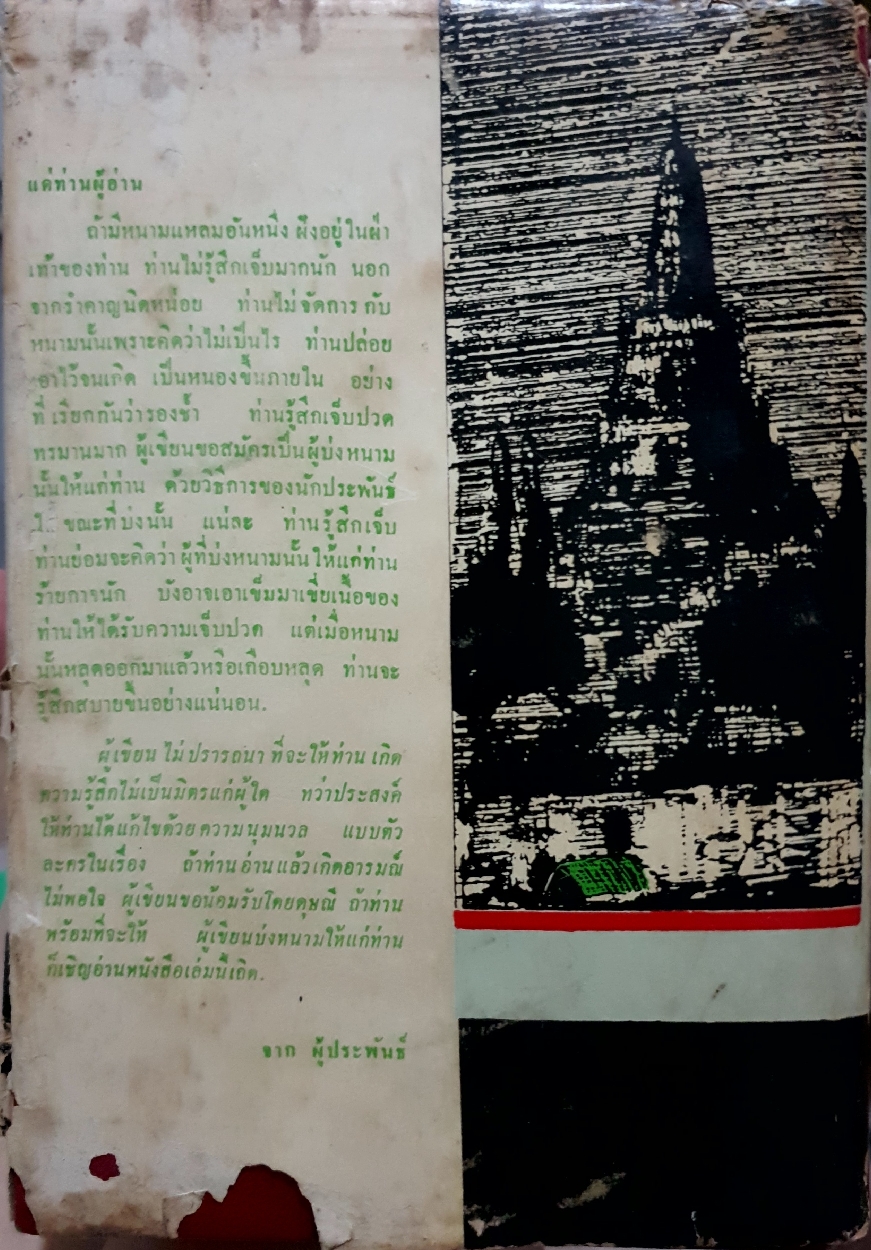 แด่ท่านผู้อ่าน
ถ้ามีหนามแหลมอันหนึ่ง ฝังอยู่ในฝ่า
เท้าของท่าน ท่านไม่รู้สึกเจ็บมากนัก นอก
จากรำคาญนิดหน่อย ท่านไม่จัดการ กับ
หนามนั้นเพราะคิดว่าไม่เป็นไร ท่านปล่อย
เอาไว้จนเกิด เป็นหนองขึ้นภายใน อย่าง
ที่ เรียกกันว่ารองช้ำ ท่านรู้สึกเจ็บปวด
ทรมานมาก ผู้เขียนขอสมัครเป็นผู้บ่งหนาม
นั้นให้แก่ท่าน ด้วยวิธีการของนักประพันธ์
ใน ขณะที่บ่งนั้น แน่ละ ท่านรู้สึกเจ็บ
ท่านย่อมจะคิดว่า ผู้ที่บ่งหนามนั้นให้แก่ท่าน
ร้ายกาจนัก บังอาจเอาเข็มมาเขี่ยเนื้อของ
ท่านให้ได้รับความเจ็บปวด แต่เมื่อหนาม
นั้นหลุดออกมาแล้วหรือเกือบหลุด ท่านจะ
รู้สึกสบายขึ้นอย่างแน่นอน.
ผู้เขียน ไม่ ปรารถนา ที่จะให้ท่าน เกิด
ความรู้สึกไม่เป็นมิตรแก่ผู้ใด ทว่าประสงค์
ให้ท่านได้แก้ไขด้วย ความนุ่มนวล แบบตัว
ละครในเรื่อง ถ้าท่าน อ่าน แล้วเกิดอารมณ์
ไม่พอใจ ผู้เขียนขอน้อมรับโดยดุษณี ถ้าท่าน
พร้อมที่จะให้ ผู้เขียนบ่งหนามให้แก่ท่าน
ก็เชิญอ่านหนังสือเล่มนี้เถิด.
จาก ผู้ประพันธ์